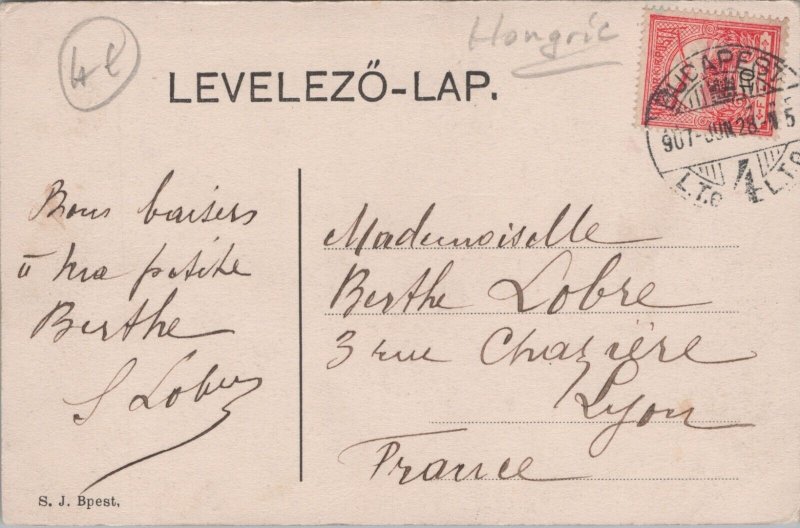 Hongrie
LEVELEZŐ-LAP.
BUDAPEST
907-JUN 28-N 5
4
Bons baisers
ma petite
Berthe
S Lobre
Mademoiselle
Berthe Lobre
3 rue Chazière
Lyon
France
S. J. Bpest,